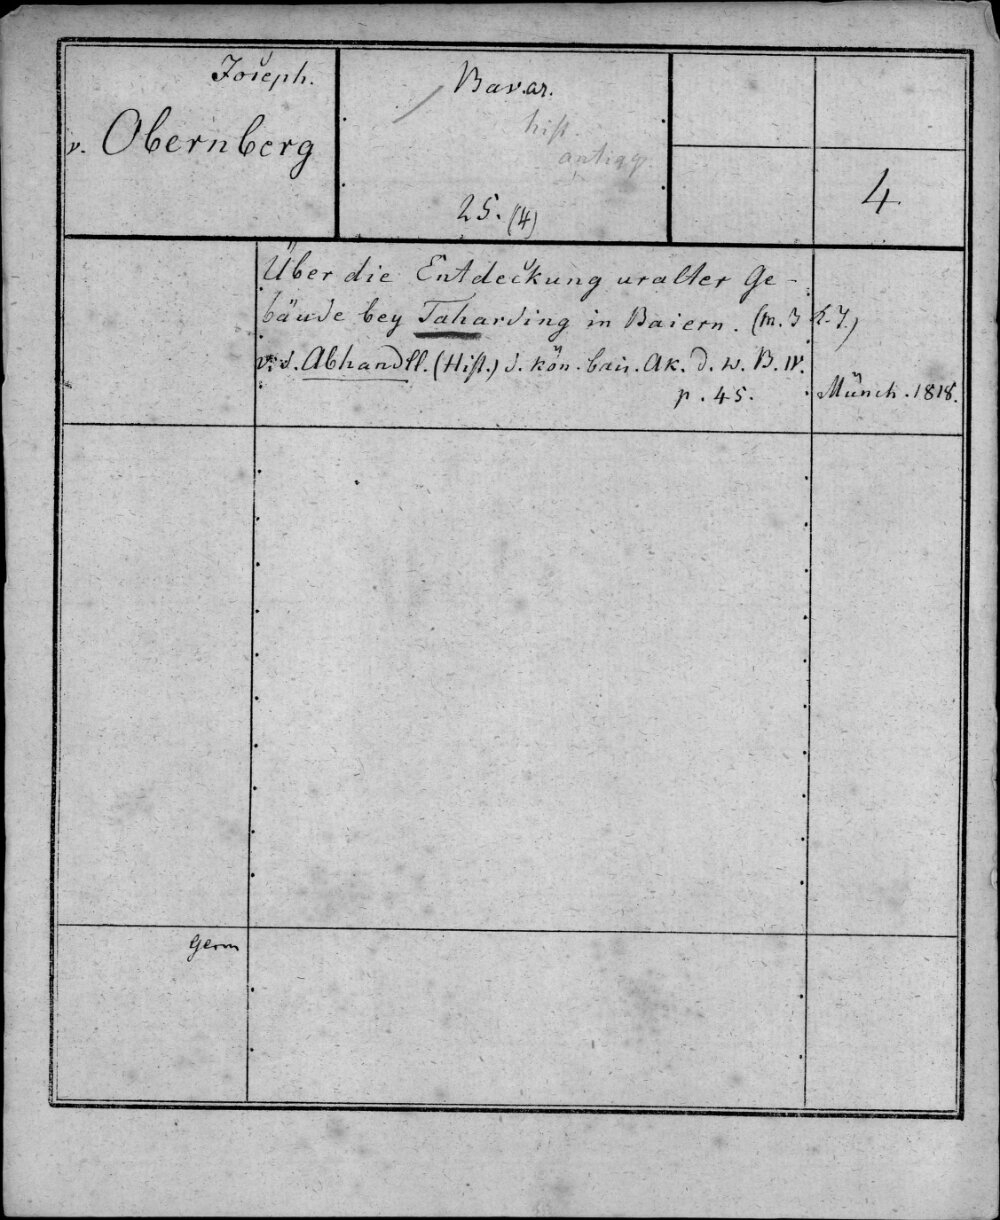 Joseph.
v. Obernberg
Bavar.
hist.
antiqq
25. (4)
4
Über die Entdeckung uralter Ge-
bäude bey Taharding in Baiern. (m. 3 K. T.)
v. d. Abhandll. (Hist.) d. kön. bair. Ak. d. W. B. IV.
p. 45.
Münch. 1818.
Germ